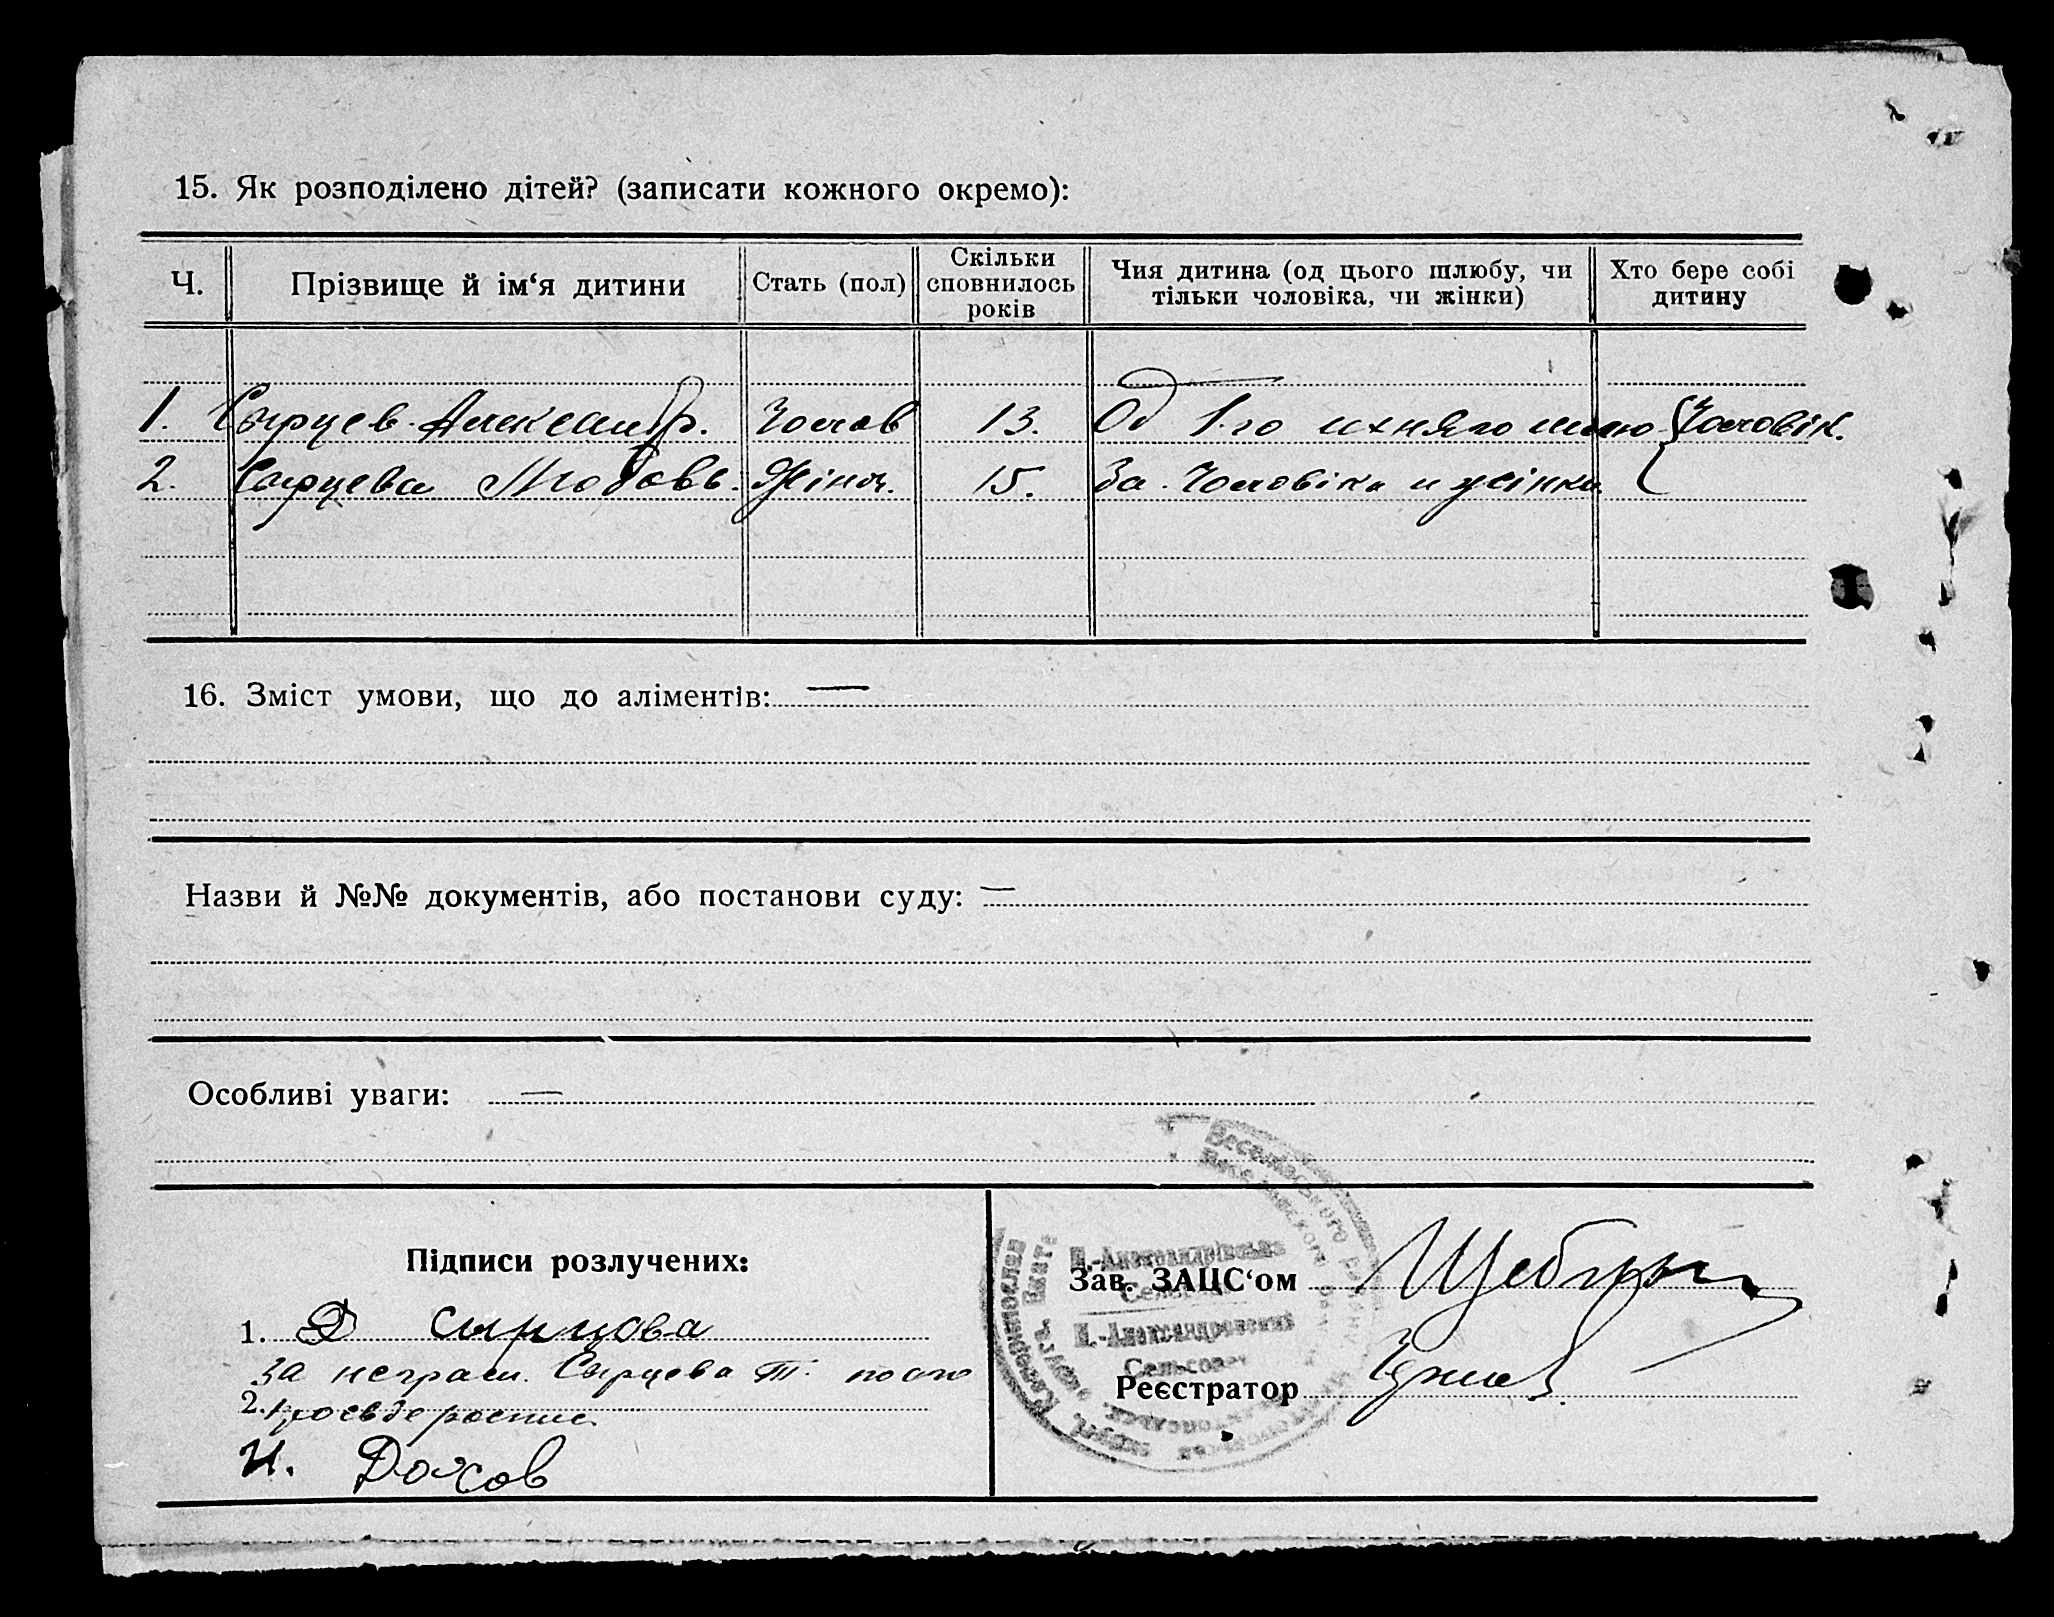 15. Як розподілено дітей? (записати кожного окремо):
Ч. Прізвище й ім‘я дитини Стать (пол) Скільки сповнилось років Чия дитина (од цього шлюбу, чи тільки чоловіка, чи жінки) Хто бере собі дитину
1. Сырцев Александр. Чолов 13. Од 1-го ихняго шлю Чоловік.
2. Сырцева Любовь. Жіноч. 15. За Чоловіка и жінки.
16. Зміст умови, що до аліментів: —
Назви й №№ документів, або постанови суду: —
Особливі уваги: —
Підписи розлучених:
1. Д Сырцова
за неграм. Сырцева Т. по его
2. прозьбе роспис.
И. Должов
Зав. ЗАЦС‘ом
Реєстратор
Веселівського району
Н.-Александрівська
Н.-Александровский
Сельсовет